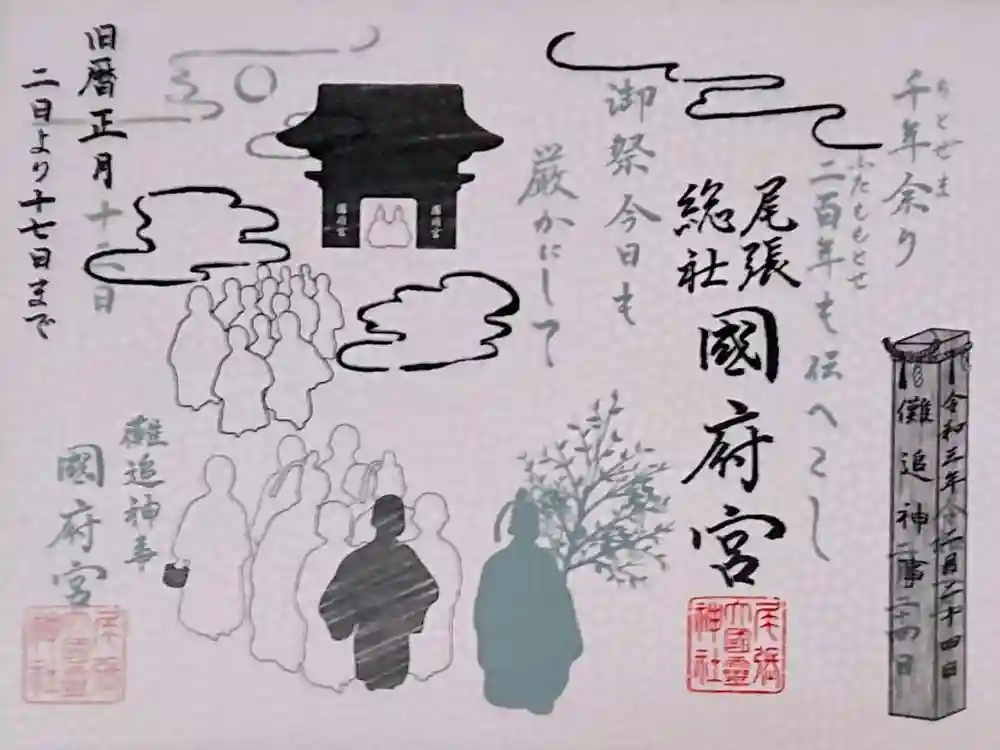 千年余り
ちとせま
二百年も伝へこし
ふたももとせ
御祭今日も
厳かにして
尾張
総社
國府宮
旧暦正月
十二日
二日より十七日まで
國府宮
國府宮
儺追神事
國府宮
儺追神事
令和三年
二月二十四日
二十四日
尾張
大國霊
神社
尾張
大國霊
神社